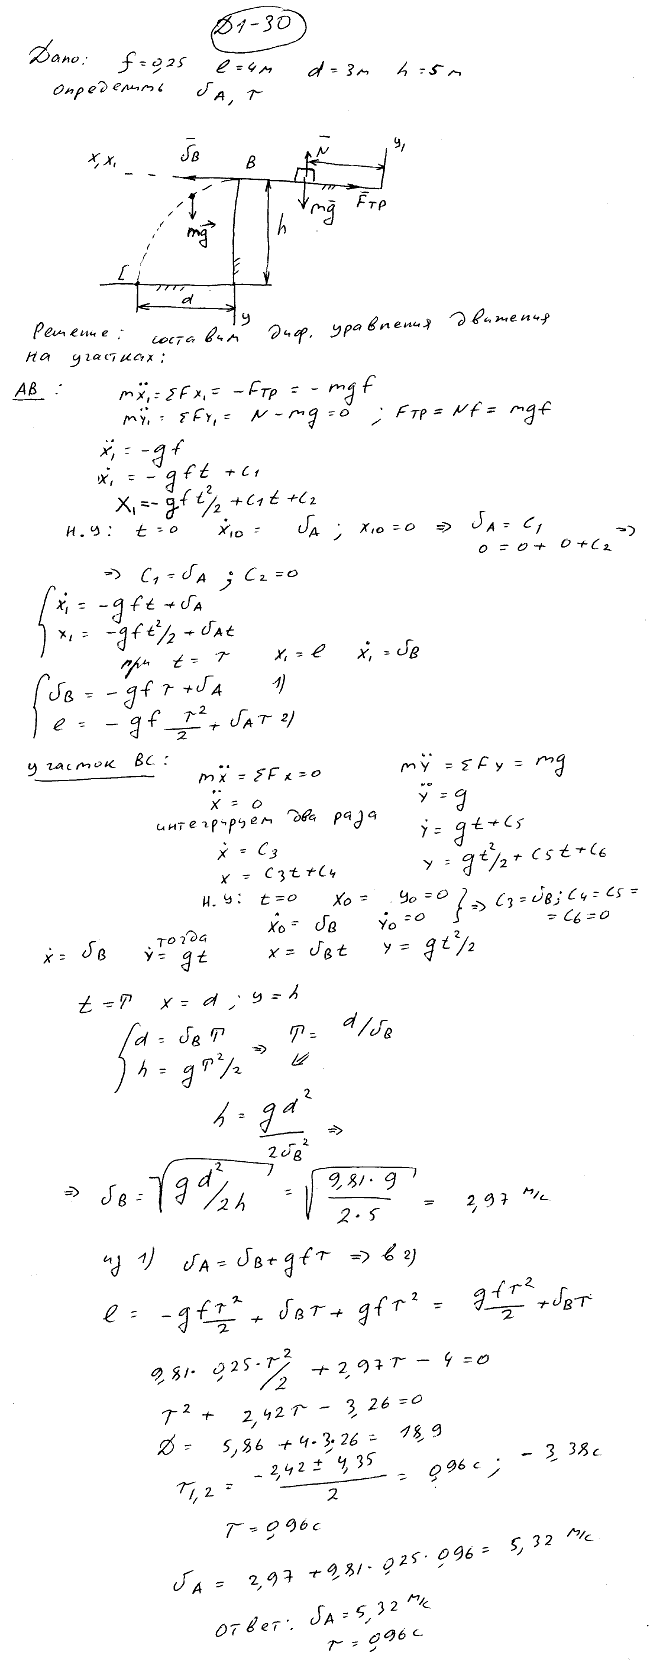 Д1-30
Дано: f=0,25 l=4м d=3м h=5м
определить υA, τ
x, x₁ ῡB B N̄ y₁
mḡ F̄тр
mḡ h
C d y
Решение: составим диф. уравнения движения
на участках:
AB : mẍ₁=ΣFx₁=-Fтр=-mgf
mÿ₁=ΣFy₁= N-mg=0 ; Fтр=Nf=mgf
ẍ₁=-gf
ẋ₁=-gft+C₁
x₁=-gft²/2+C₁t+C₂
н.у: t=0 ẋ₁₀= υA ; x₁₀=0 ⇒ υA=C₁ ⇒
0=0+0+C₂
⇒ C₁=υA ; C₂=0
ẋ₁=-gft+υA
x₁=-gft²/2+υAt
при t=τ x₁=l ẋ₁=υB
υB=-gfτ+υA 1)
l=-gf τ²/2+υAτ 2)
участок BC: mẍ=ΣFx=0 mÿ=ΣFy=mg
ẍ=0 ÿ=g
интегрируем два раза ẏ=gt+C5
ẋ=C3
x=C3t+C4 y=gt²/2+C5t+C6
н.у: t=0 x₀= y₀=0 } ⇒ C3=υB; C4=C5=
ẋ₀=υB ẏ₀=0 =C6=0
тогда
ẋ=υB ẏ=gt x=υBt y=gt²/2
t=T x=d ; y=h
d=υBT ⇒ T=d/υB
h=gT²/2
h=gd²/2υB² ⇒
⇒ υB=√gd²/2h=√9,81·9/2·5= 2,97 м/с
из 1) υA=υB+gfτ ⇒ в 2)
l=-gfτ²/2+υBτ+gfτ²=gfτ²/2+υBτ
9,81·0,25·τ²/2+2,97τ-4=0
τ²+2,42τ-3,26=0
Д=5,86+4·3,26=18,9
τ1,2=-2,42±4,35/2=0,96с; -3,38с
τ=0,96с
υA=2,97+9,81·0,25·0,96=5,32 м/с
ответ: υA=5,32 м/с
τ=0,96с